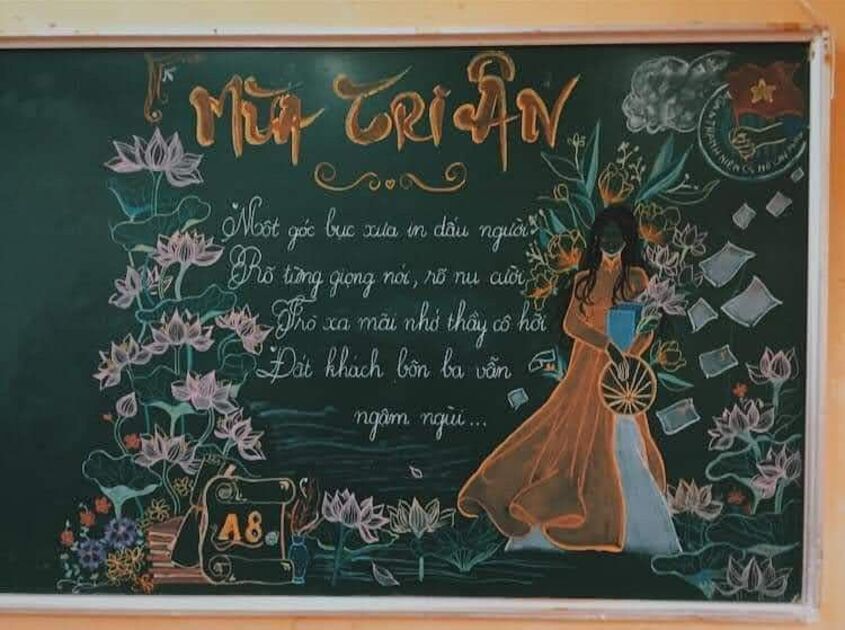 MÙA TRI ÂN
Một góc bục xưa in dấu người
Rõ từng giọng nói, rõ nụ cười
Trò xa mãi nhớ thầy cô hỡi
Đất khách bôn ba vẫn
ngậm ngùi...
A8